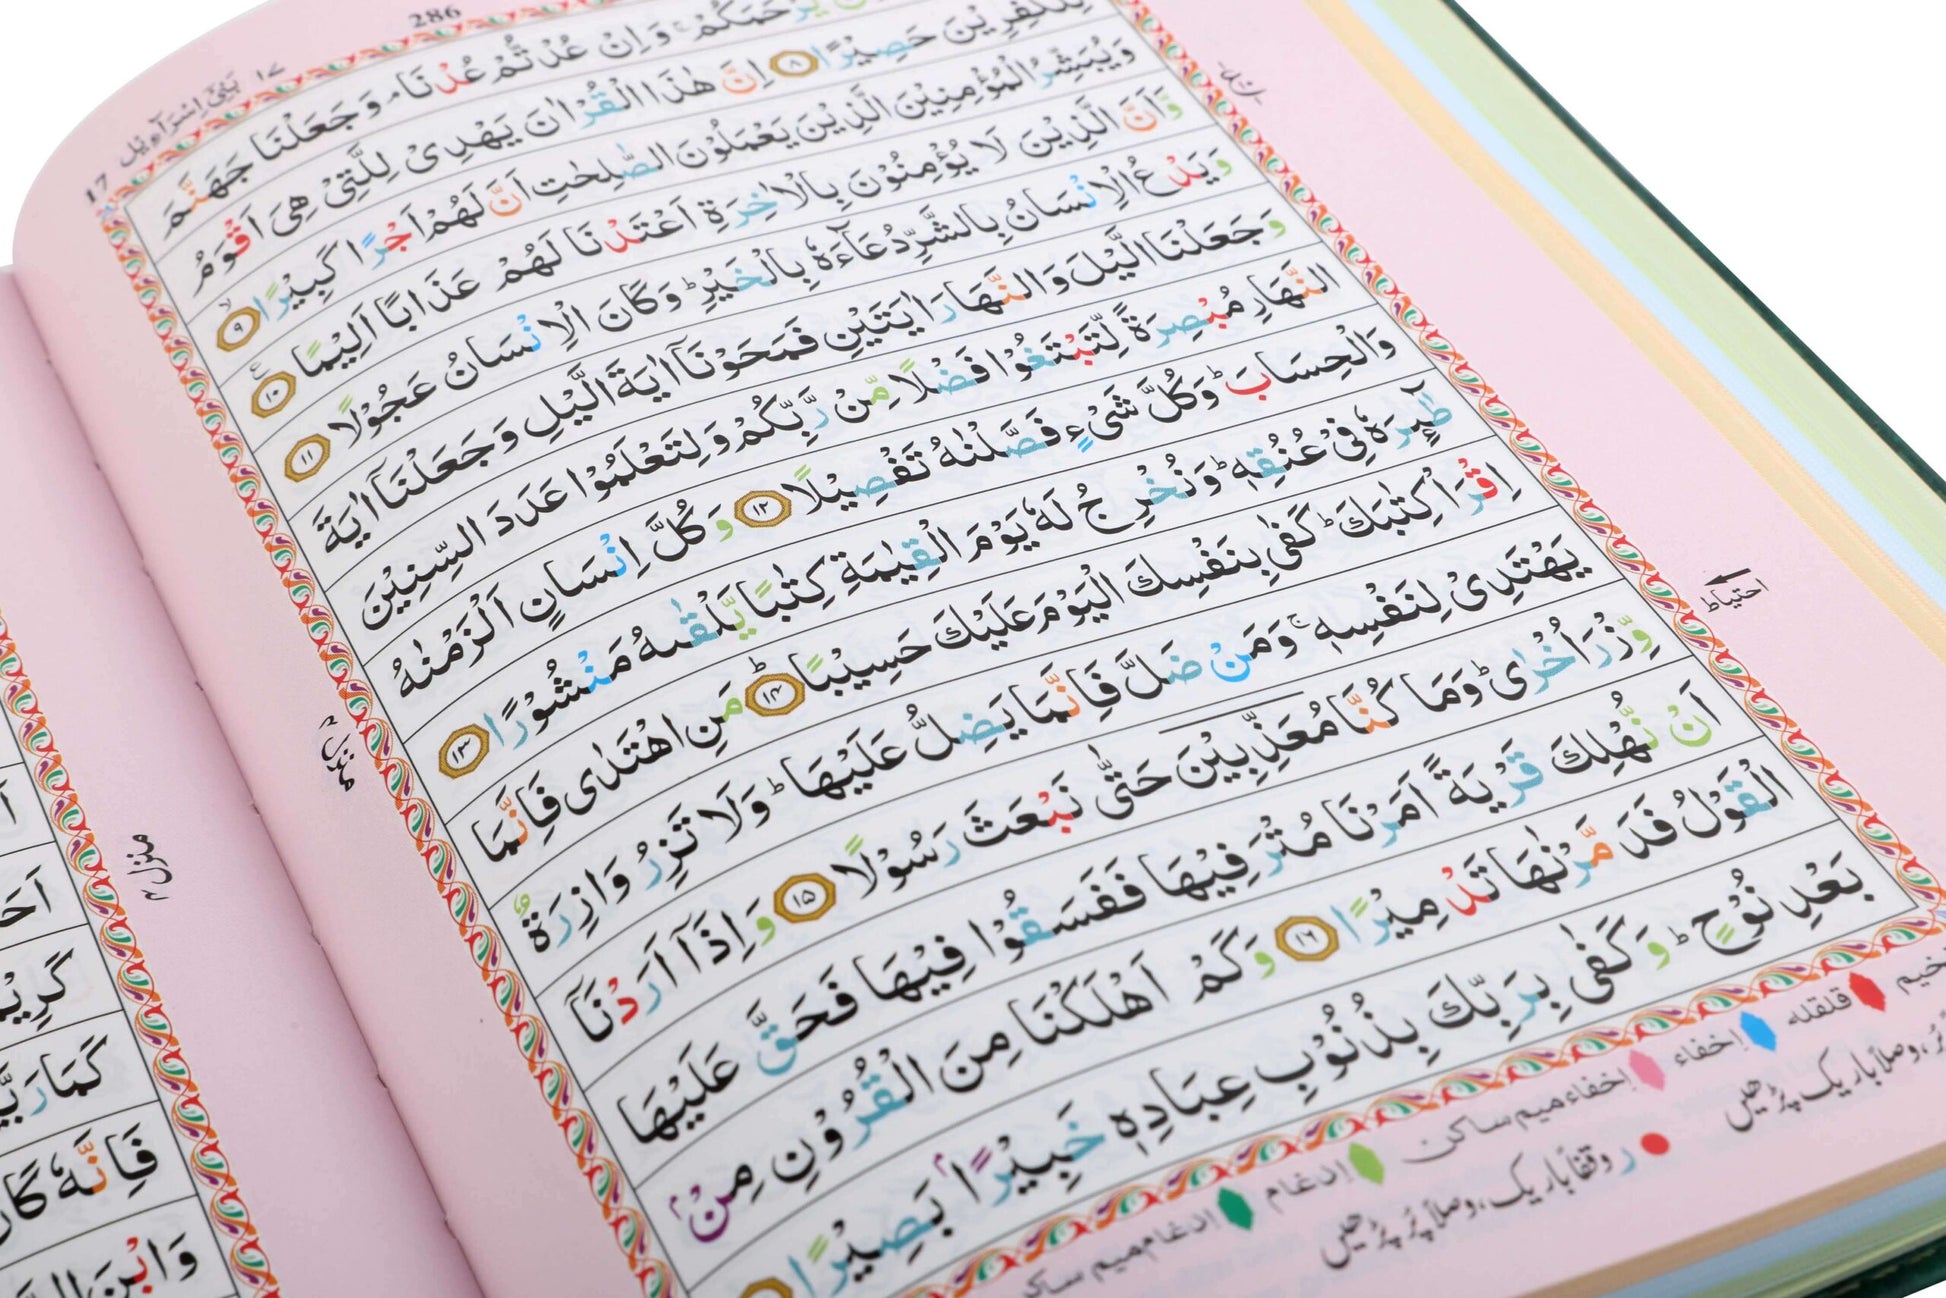 286
بَنِيْٓ اِسْرَآءِيْل ۱۷
17
يَّرْحَمَكُمْ ۚ وَاِنْ عُدْتُّمْ عُدْنَا ۘ وَجَعَلْنَا جَهَنَّمَ
لِلْكٰفِرِيْنَ حَصِيْرًا ۸ اِنَّ هٰذَا الْقُرْاٰنَ يَهْدِيْ لِلَّتِيْ هِيَ اَقْوَمُ
وَيُبَشِّرُ الْمُؤْمِنِيْنَ الَّذِيْنَ يَعْمَلُوْنَ الصّٰلِحٰتِ اَنَّ لَهُمْ اَجْرًا كَبِيْرًا ۹
وَّاَنَّ الَّذِيْنَ لَا يُؤْمِنُوْنَ بِالْاٰخِرَةِ اَعْتَدْنَا لَهُمْ عَذَابًا اَلِيْمًا ۱۰
وَيَدْعُ الْاِنْسَانُ بِالشَّرِّ دُعَآءَهٗ بِالْخَيْرِ ؕ وَكَانَ الْاِنْسَانُ عَجُوْلًا ۱۱
وَجَعَلْنَا الَّيْلَ وَالنَّهَارَ اٰيَتَيْنِ فَمَحَوْنَآ اٰيَةَ الَّيْلِ وَجَعَلْنَآ اٰيَةَ
النَّهَارِ مُبْصِرَةً لِّتَبْتَغُوْا فَضْلًا مِّنْ رَّبِّكُمْ وَلِتَعْلَمُوْا عَدَدَ السِّنِيْنَ
وَالْحِسَابَ ؕ وَكُلَّ شَيْءٍ فَصَّلْنٰهُ تَفْصِيْلًا ۱۲ وَكُلَّ اِنْسَانٍ اَلْزَمْنٰهُ
طٰٓئِرَهٗ فِيْ عُنُقِهٖ ؕ وَنُخْرِجُ لَهٗ يَوْمَ الْقِيٰمَةِ كِتٰبًا يَّلْقٰىهُ مَنْشُوْرًا ۱۳
اِقْرَاْ كِتٰبَكَ ؕ كَفٰى بِنَفْسِكَ الْيَوْمَ عَلَيْكَ حَسِيْبًا ؕ ۱۴ مَنِ اهْتَدٰى فَاِنَّمَا
يَهْتَدِيْ لِنَفْسِهٖ ۚ وَمَنْ ضَلَّ فَاِنَّمَا يَضِلُّ عَلَيْهَا ؕ وَلَا تَزِرُ وَازِرَةٌ
وِّزْرَ اُخْرٰى ؕ وَمَا كُنَّا مُعَذِّبِيْنَ حَتّٰى نَبْعَثَ رَسُوْلًا ۱۵ وَاِذَآ اَرَدْنَآ
اَنْ نُّهْلِكَ قَرْيَةً اَمَرْنَا مُتْرَفِيْهَا فَفَسَقُوْا فِيْهَا فَحَقَّ عَلَيْهَا
الْقَوْلُ فَدَمَّرْنٰهَا تَدْمِيْرًا ۱۶ وَكَمْ اَهْلَكْنَا مِنَ الْقُرُوْنِ مِنْۢ
بَعْدِ نُوْحٍ ؕ وَكَفٰى بِرَبِّكَ بِذُنُوْبِ عِبَادِهٖ خَبِيْرًۢا بَصِيْرًا
احتیاط
منزل ۴
قلقلہ اِخفاء اِخفاء میم ساکن اِدغام اِدغام میم ساکن
ر وقفاً باریک، وصلاً پُر پڑھیں
وصلاً باریک پڑھیں
منزل ۴
كَمَا رَبَّ
فَاِنَّهٗ كَانَ
وَابْنَ